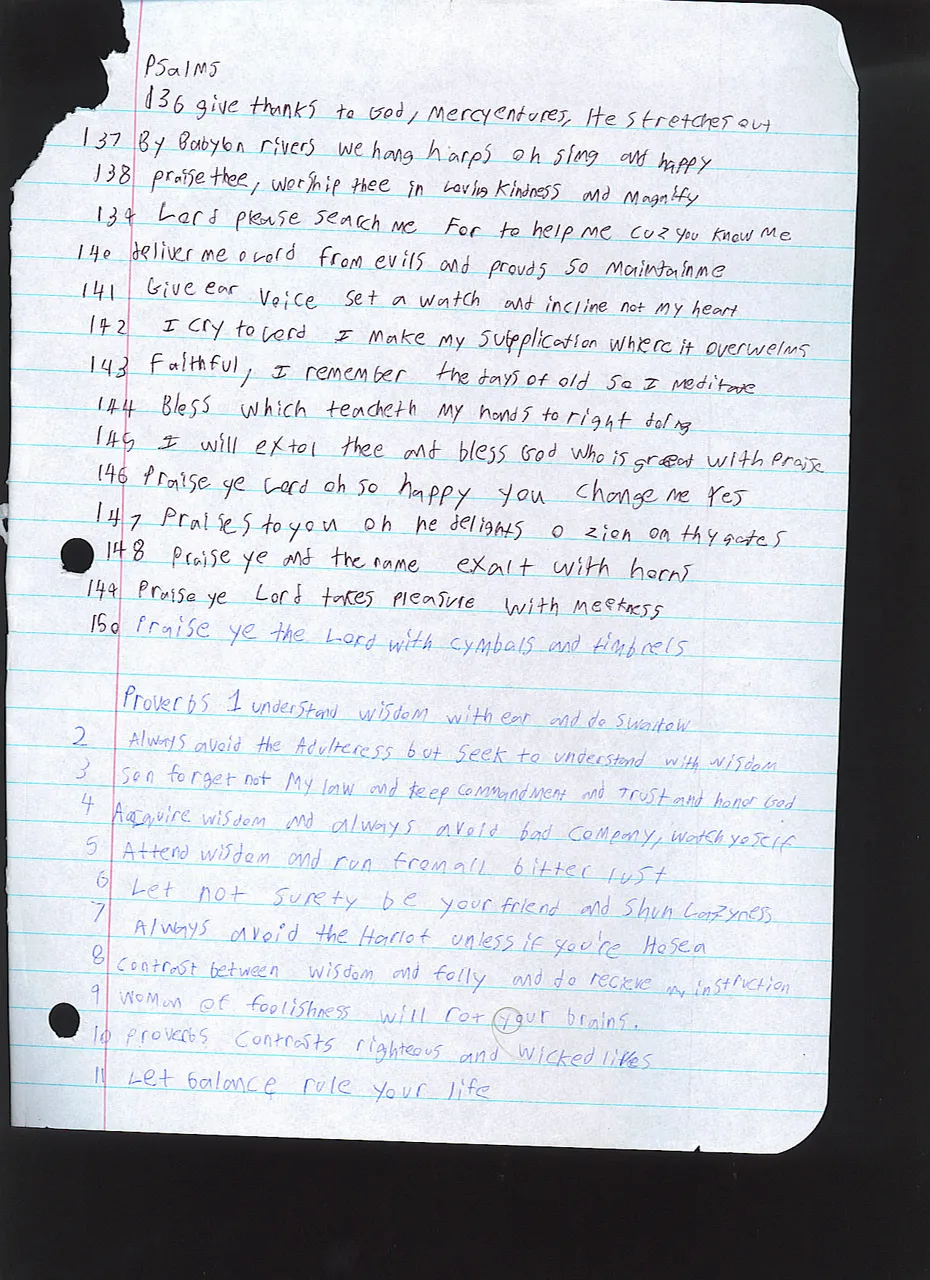 Psalms
136 give thanks to God, Mercyentures, He stretches out
137 By Babylon rivers we hang harps oh sing and happy
138 praise thee, worship thee in Loving Kindness and Magnify
139 Lord please search me For to help me cuz you know Me
140 deliver me o Lord from evils and prouds so Maintain me
141 Give ear Voice set a watch and incline not my heart
142 I cry to Lord I make my supplication where it overwelms
143 Faithful, I remember the days of old so I meditate
144 Bless which teacheth my hands to right doing
145 I will extol thee and bless God who is great with Praise
146 Praise ye Lord oh so happy you change me Yes
147 Praises to you oh he delights o zion on thy gates
148 Praise ye and the name exalt with horns
149 Praise ye Lord takes pleasure with meekness
150 Praise ye the Lord with cymbals and timbrels
Proverbs 1 understand wisdom with ear and do swallow
2 Always avoid the Adulteress but seek to understand with wisdom
3 Son forget not My law and keep commandment and Trust and honor God
4 Acquire wisdom and always avoid bad company, watch yoself
5 Attend wisdom and run from all bitter lust
6 Let not surety be your friend and shun Lazyness
7 Always avoid the Harlot unless if you're Hosea
8 contrast between wisdom and folly and do recieve my instruction
9 Woman of foolishness will rot your brains.
10 proverbs contrasts righteous and wicked lives
11 Let balance rule your life